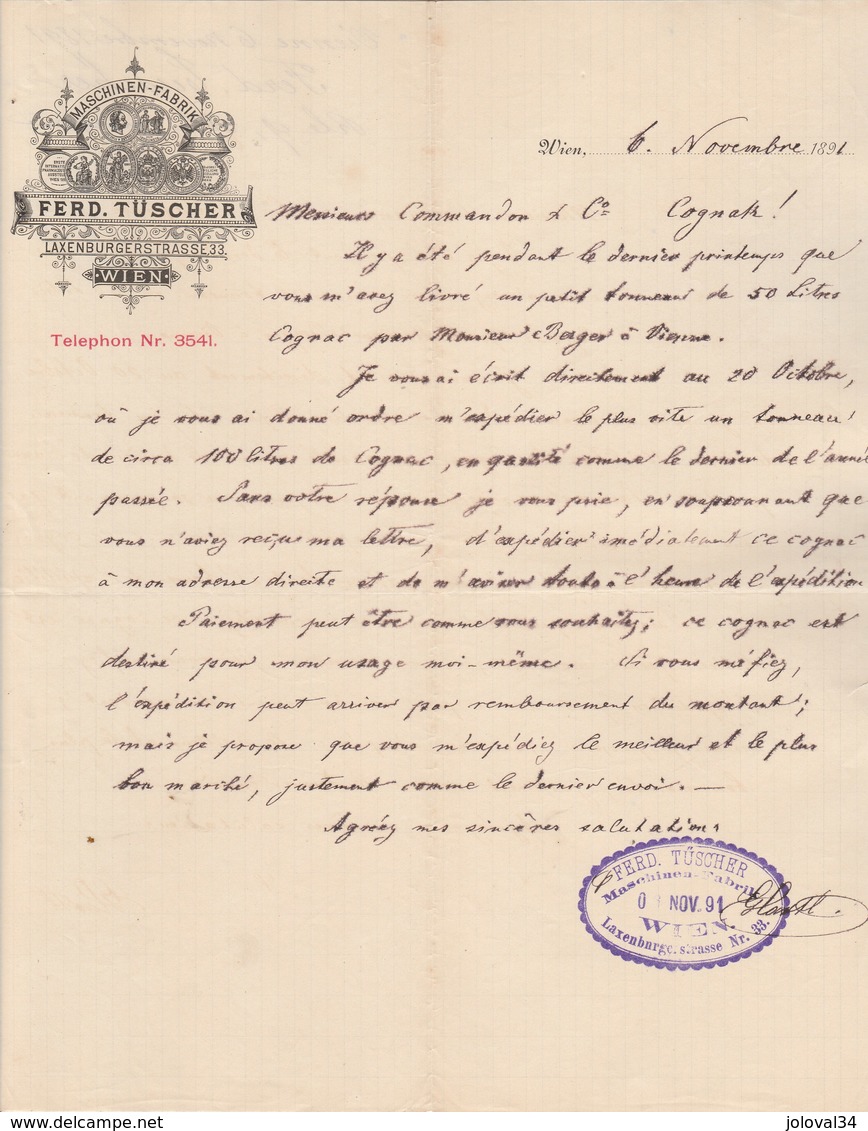 MASCHINEN-FABRIK
FERD. TÜSCHER
LAXENBURGERSTRASSE 33.
WIEN
Telephon Nr. 3541.
Wien, 6. Novembre 1891
Messieurs Commandon & Co Cognak!
Il y a été pendant le dernier printemps que
vous m'avez livré un petit tonneau de 50 Litres
Cognac par Monsieur Berger à Vienne.
Je vous ai écrit directement au 20 Octobre,
où je vous ai donné ordre m'expédier le plus vite un tonneau
de circa 100 litres de Cognac, en comme le dernier de l'année
passée. Sans votre réponse je vous prie, en soupçonnant que
vous n'aviez reçu ma lettre, d'expédier imédiatement ce cognac
à mon adresse directe et de m'aviser toute à l'heure de l'expédition
Paiement peut être comme vous souhaitez; ce cognac est
destiné pour mon usage moi-même. Si vous méfiez,
l'expédition peut arriver par remboursement du montant;
mais je propose que vous m'expédiez le meilleur et le plus
bon marché, justement comme le dernier envoi. —
Agréez mes sincères salutations
FERD. TÜSCHER
Maschinen-Fabrik
NOV. 91
WIEN.
Laxenburge.strasse Nr. 33.
delcampe.net
joloval34